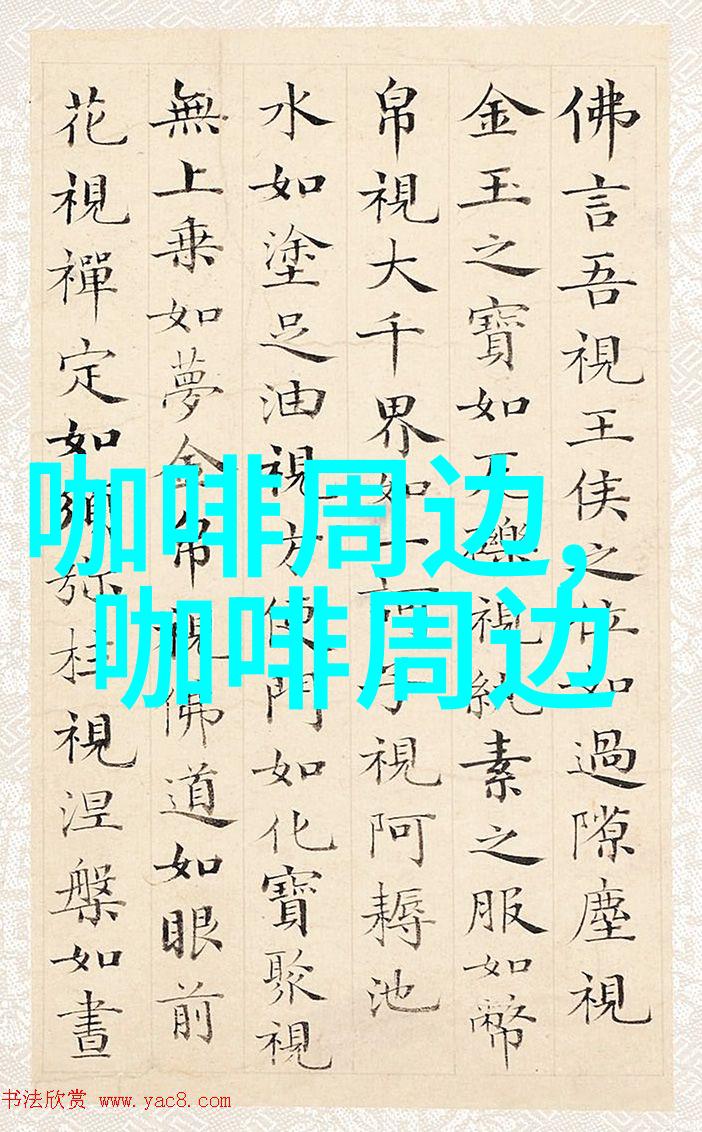 佛言吾視王侯之位如過隙塵視
金玉之寶如瓦礫視紈素之服如幣
帛視大千界如一訶子視阿耨池
水如塗足油視方便門如化寶聚視
無上乗如夢金帛視佛道如眼前
花視禪定如須弥柱視涅槃如晝
咖啡周边,
咖啡周边
书法欣赏 www.yac8.com